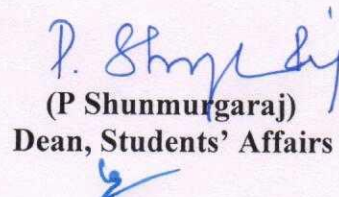 (P Shunmurgaraj)
Dean, Students' Affairs